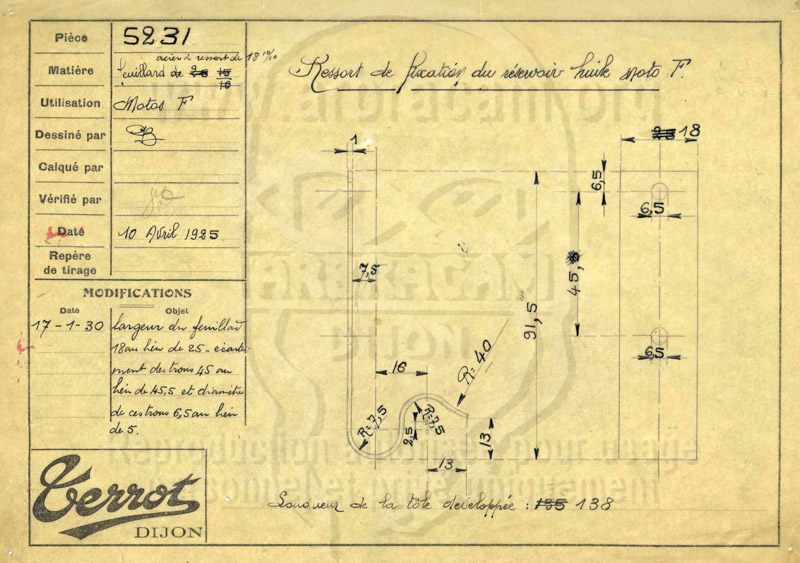 Pièce 5231
acier à ressort de 18 10/10
Matière feuillard de 25 15
10
Utilisation Motos F
Dessiné par
Calqué par
Vérifié par
Date 10 Avril 1925
Repère
de tirage
MODIFICATIONS
Date Objet
17-1-30 Largeur du feuillard
18 au lieu de 25 - écarte-
ment des trous 45 au
lieu de 45,5 et diamètre
de ces trous 6,5 au lieu
de 5.
Terrot
DIJON
Ressort de fixation du réservoir huile Moto F.
1
25 18
6,5
6,5
7,5
45,5
91,5
6,5
16
R=40
R=7,5
R=7,5
25
13
13
Longueur de la tôle développée : 135 138
www.arbracam.org
ARBRACAM
MOTO
Reproduction pour usage
personnel et uniquement